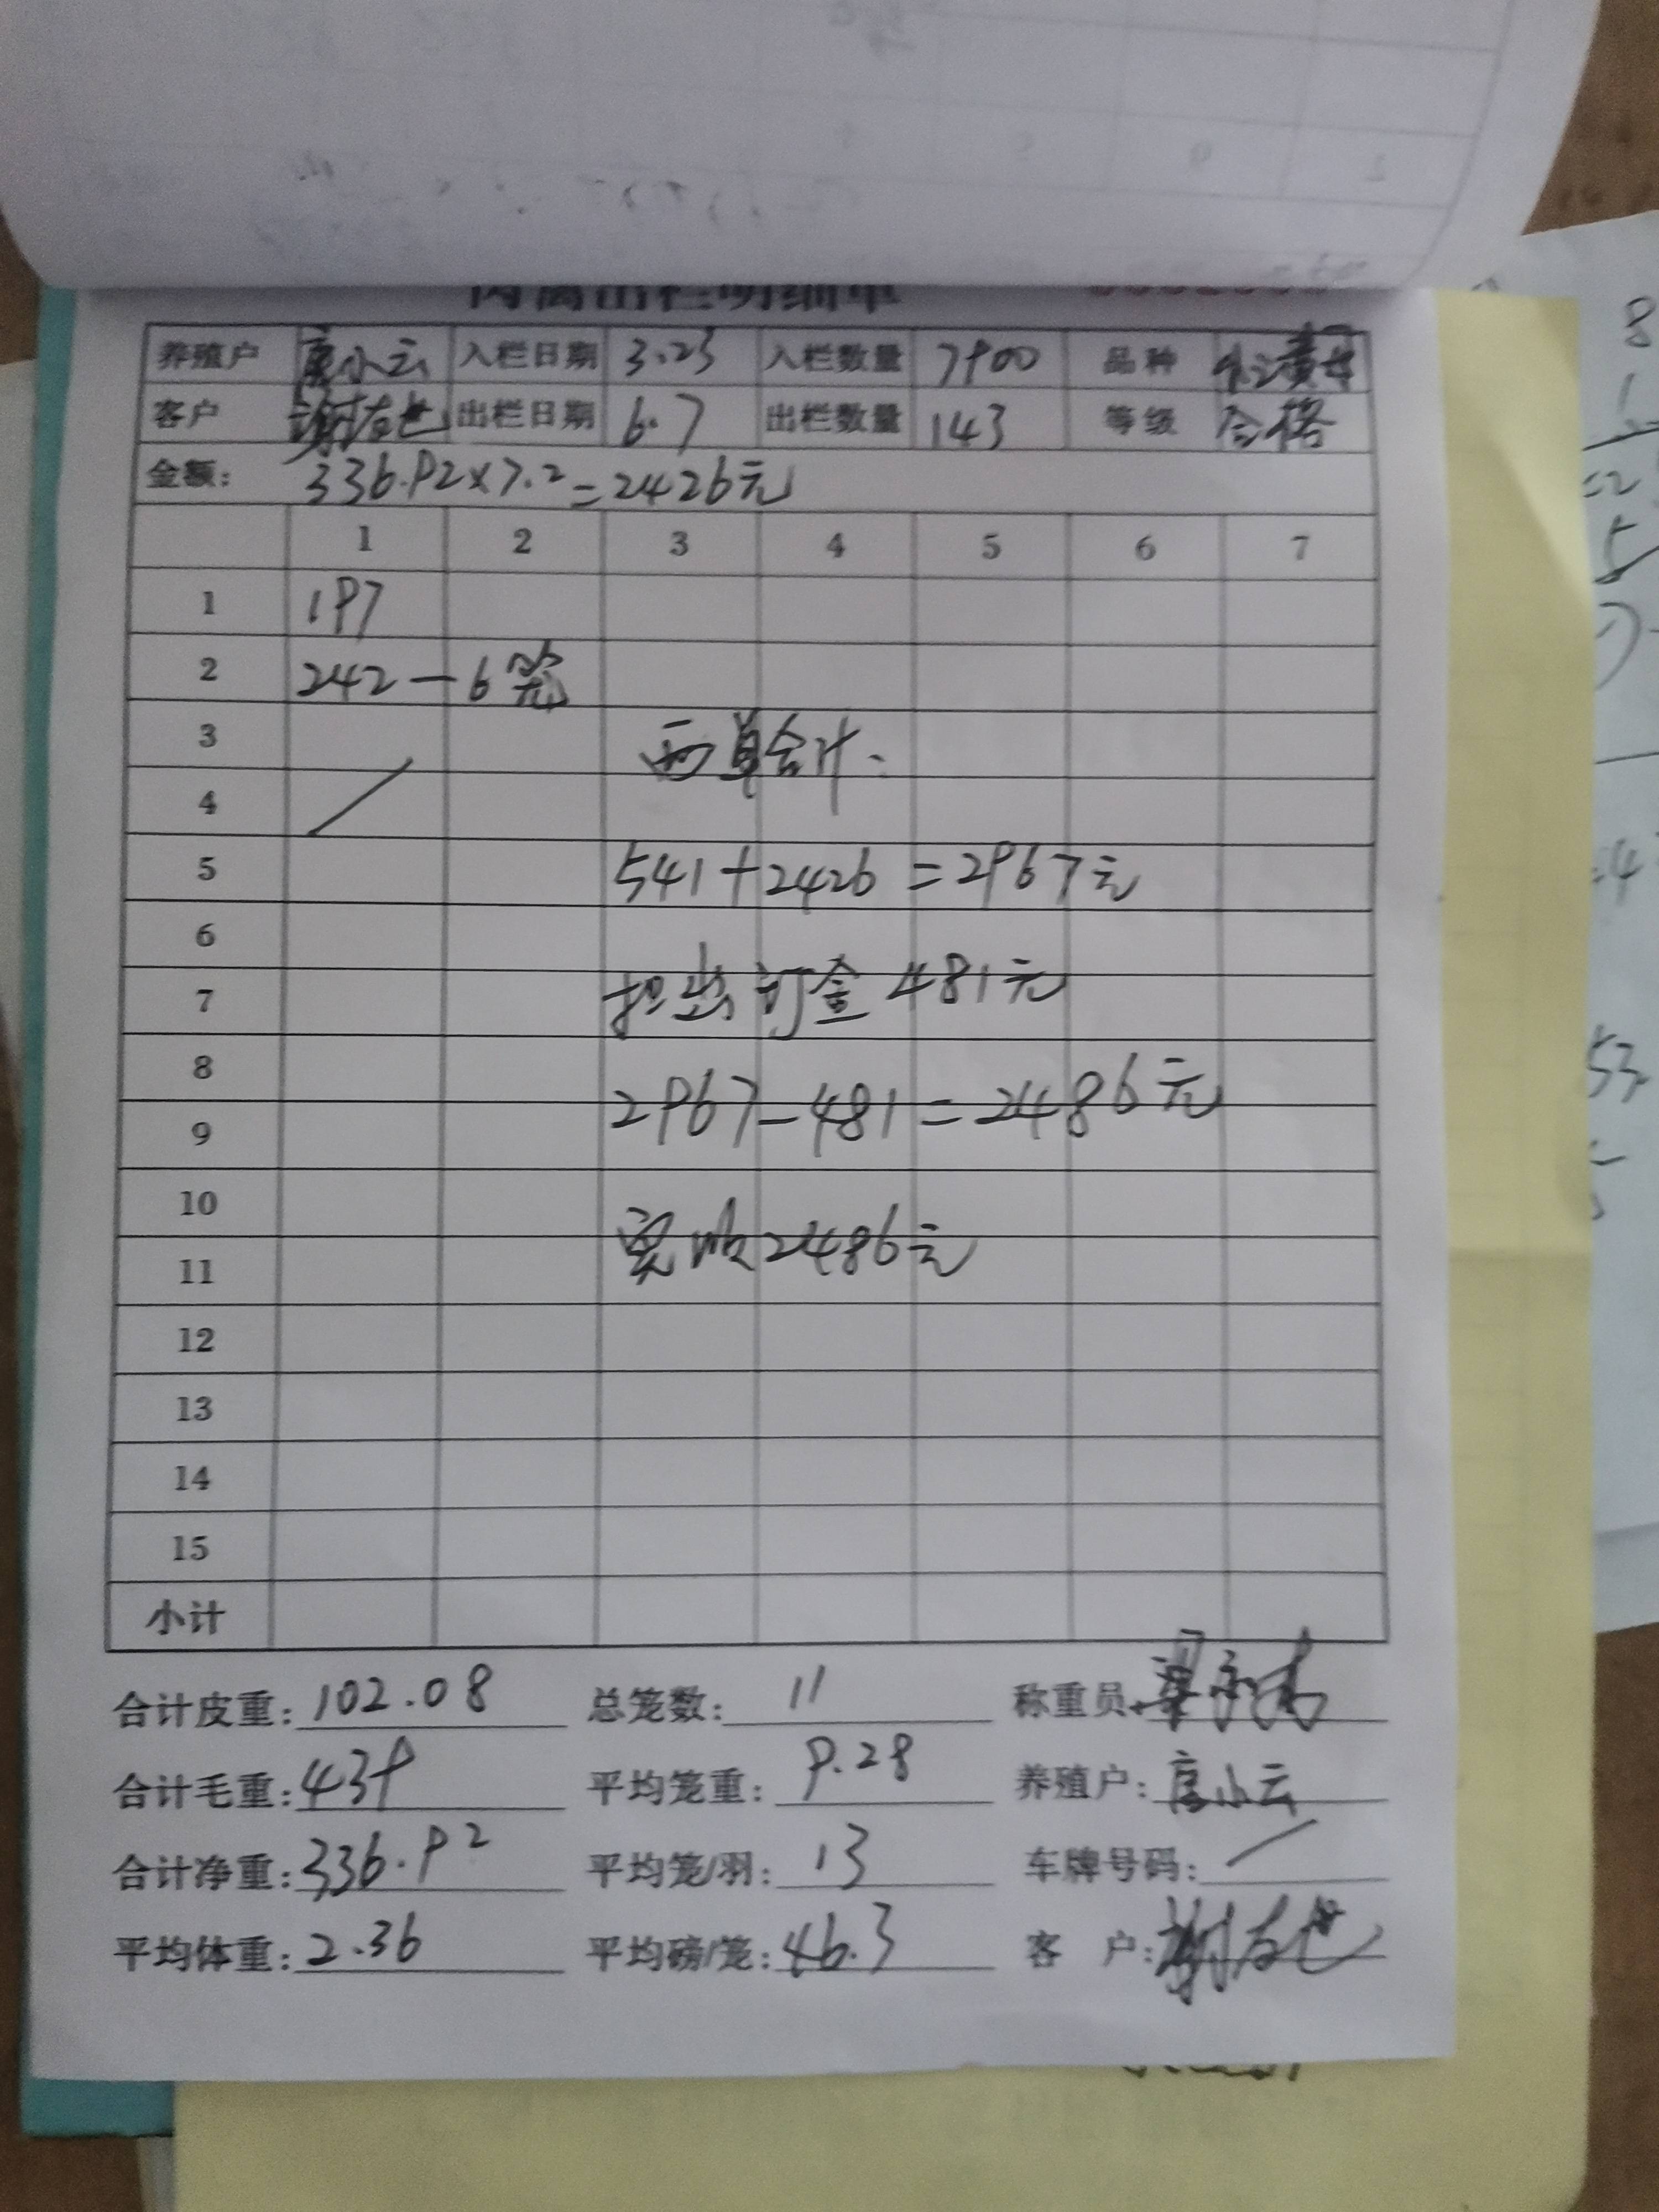 肉禽出栏明细单
养殖户 唐小云 入栏日期 3.23 入栏数量 7900 品种
客户 谢友世 出栏日期 6.7 出栏数量 143 等级 合格
金额: 336.92×7.2=2426元
1 2 3 4 5 6 7
1 197
2 242—6笼
3 两单合计.
4
5 541+2426=2967元
6
7 扣出订金481元
8 2967-481=2486元
9
10
11 实收2486元
12
13
14
15
小计
合计皮重: 102.08 总笼数: 11 称重员:
合计毛重: 439 平均笼重: 9.28 养殖户: 唐小云
合计净重: 336.92 平均笼/羽: 13 车牌号码: /
平均体重: 2.36 平均磅/笼: 46.3 客 户: 谢友世